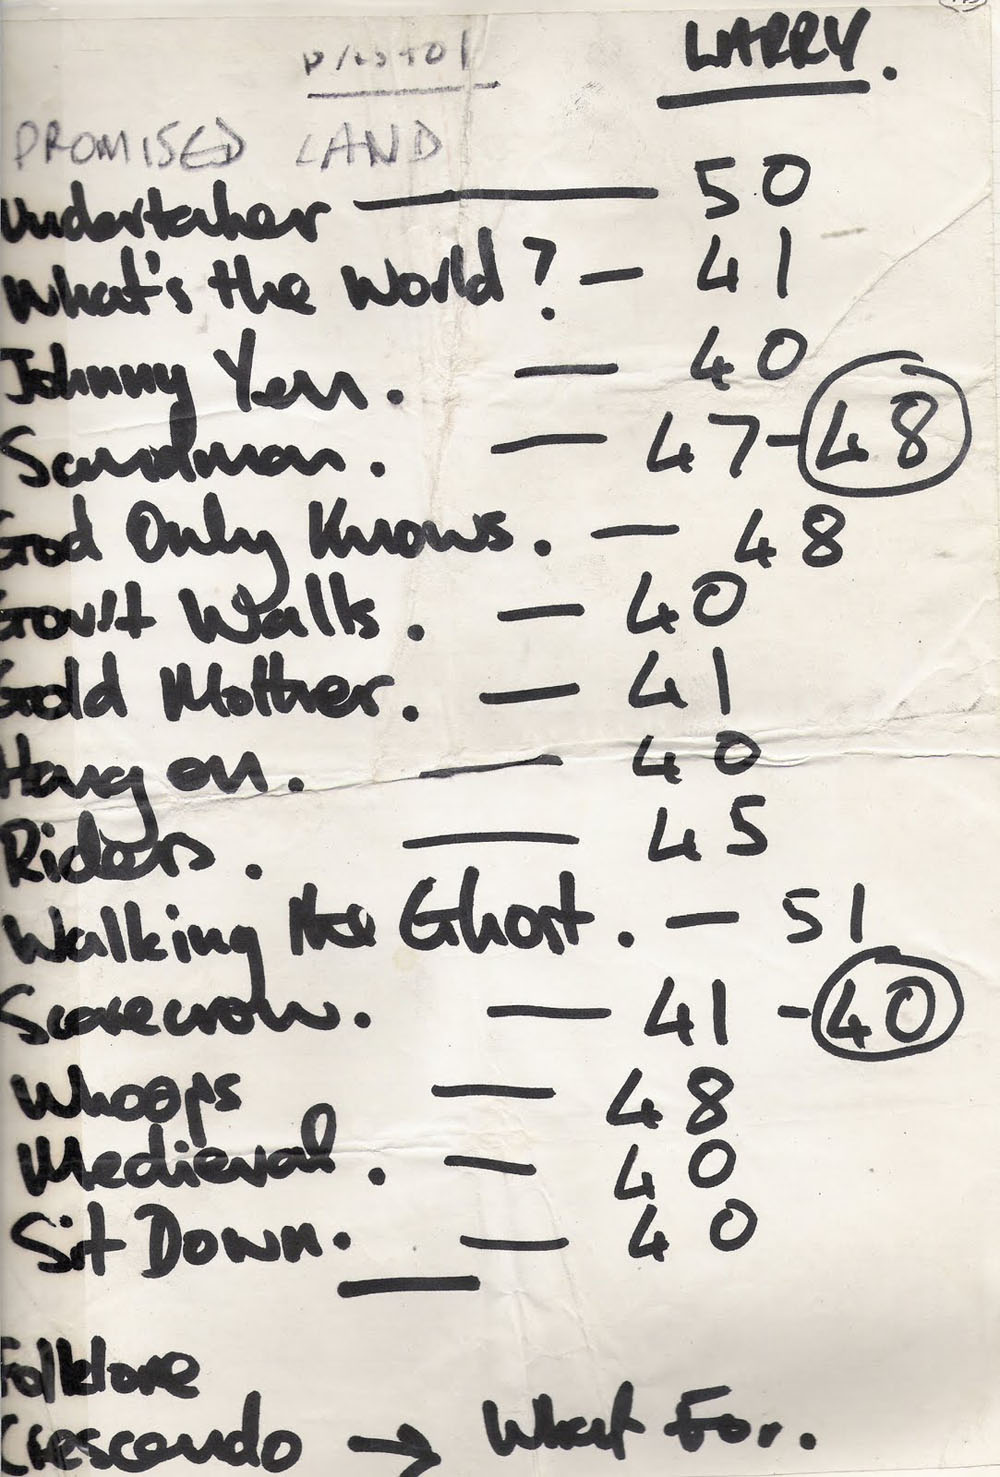 LARRY.
PROMISED LAND
Undertaker — 50
What's the World? — 41
Johnny Yen. — 40
Sandman. — 47-48
God Only Knows. — 48
Gov't Walls. — 40
Gold Mother. — 41
Hang on. — 40
Riders. — 45
Walking the Ghost. — 51
Scarecrow. — 41 - 40
Whoops — 48
Medieval. — 40
Sit Down. — 40
Folklore
Crescendo → What For.